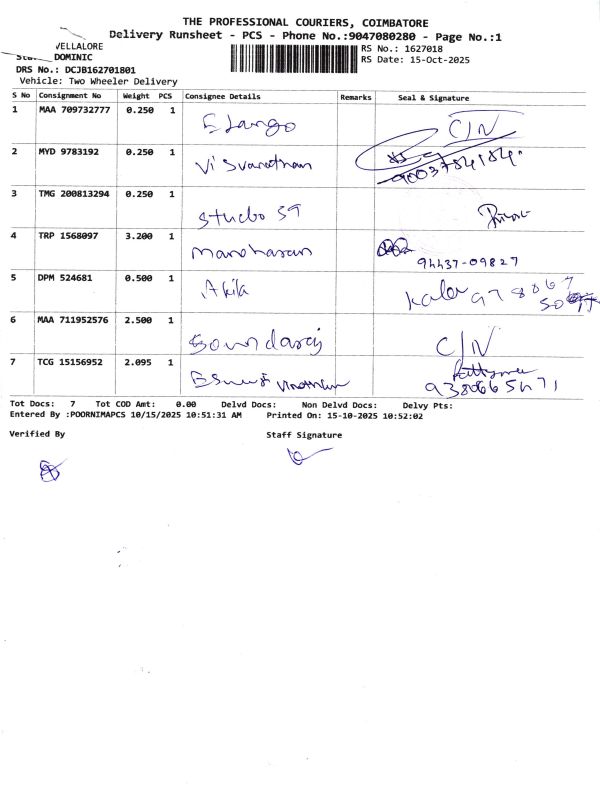 THE PROFESSIONAL COURIERS, COIMBATORE
Delivery Runsheet - PCS - Phone No.:9047080280 - Page No.:1
VELLALORE
RS No.: 1627018
DOMINIC
RS Date: 15-Oct-2025
DRS No.: DCJB162701801
Vehicle: Two Wheeler Delivery
S No Consignment No Weight PCS Consignee Details Remarks Seal & Signature
1 MAA 709732777 0.250 1
Elango C/N
2 MYD 9783192 0.250 1
Visvanathan 9003784184
3 TMG 200813294 0.250 1
Studio 59
4 TRP 1568097 3.200 1
manoharan
94437-09827
5 DPM 524681 0.500 1
Akila Kala 978867
6 MAA 711952576 2.500 1
Soundaraj C/N
7 TCG 15156952 2.095 1
Tot Docs: 7 Tot COD Amt: 0.00 Delvd Docs: Non Delvd Docs: Delvy Pts:
Entered By :POORNIMAPCS 10/15/2025 10:51:31 AM Printed On: 15-10-2025 10:52:02
Verified By Staff Signature